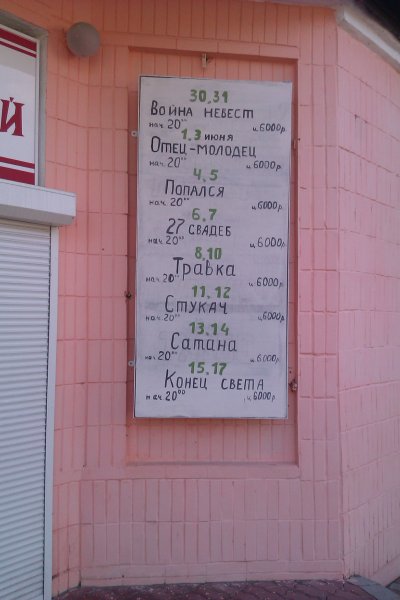 Й
30,31
Война невест
нач. 20⁰⁰ ц. 6000 р.
1,3 июня
Отец-молодец
нач. 20⁰⁰ ц. 6000 р.
4,5
Попался
нач. 20⁰⁰ ц. 6000 р.
6,7
27 свадеб
нач. 20⁰⁰ ц. 6000 р.
8,10
Травка
нач. 20⁰⁰ ц. 6000 р.
11,12
Стукач
нач. 20⁰⁰ ц. 6000 р.
13,14
Сатана
нач. 20⁰⁰ ц. 6000 р.
15,17
Конец света
нач. 20⁰⁰ ц. 6000 р.